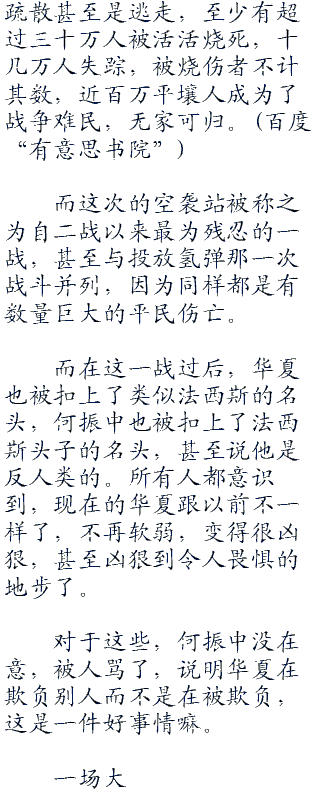 疏散甚至是逃走，至少有超
过三十万人被活活烧死，十
几万人失踪，被烧伤者不计
其数，近百万平壤人成为了
战争难民，无家可归。(百度
“有意思书院”)
而这次的空袭站被称之
为自二战以来最为残忍的一
战，甚至与投放氢弹那一次
战斗并列，因为同样都是有
数量巨大的平民伤亡。
而在这一战过后，华夏
也被扣上了类似法西斯的名
头，何振中也被扣上了法西
斯头子的名头，甚至说他是
反人类的。所有人都意识
到，现在的华夏跟以前不一
样了，不再软弱，变得很凶
狠，甚至凶狠到令人畏惧的
地步了。
对于这些，何振中没在
意，被人骂了，说明华夏在
欺负别人而不是在被欺负，
这是一件好事情嘛。
一场大